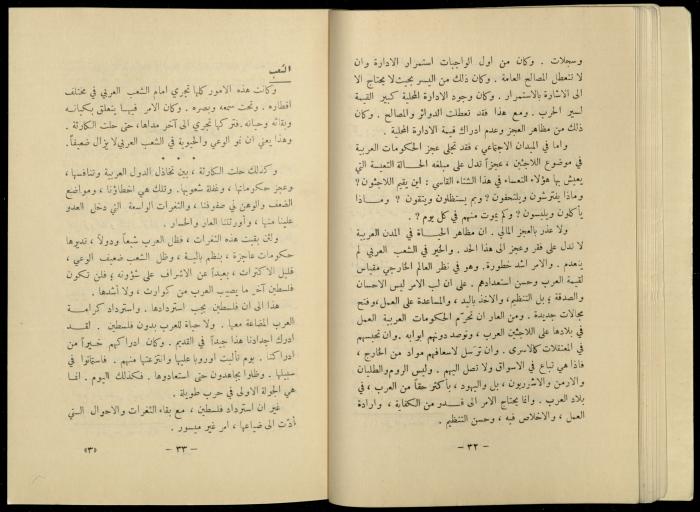 وسجلات . وكان من اول الواجبات استمرار الادارة وان
لا تتعطل المصالح العامة . وكان ذلك من اليسر بحيث لا يحتاج الا
الى الاشارة بالاستمرار . وكان وجود الادارة المحلية كبير القيمة
لسير الحرب . ومع هذا فقد تعطلت الدوائر والمصالح . وكان
ذلك من مظاهر العجز وعدم ادراك قيمة الادارة المحلية .
واما في الميدان الاجتماعي ، فقد تجلى عجز الحكومات العربية
في موضوع اللاجئين ، عجزاً تدل على مبلغه الحالة التعسة التي
يعيش بها هؤلاء التعساء في هذا الشتاء القاسي : اين يقيم اللاجئون ?
وماذا يفترشون ويلتحفون ? وبم يستظلون ويتقون ? وماذا
يأكلون ويلبسون ? وكم يموت منهم في كل يوم ? .
ولا عذر بالعجز المالي . ان مظاهر الحياة في المدن العربية
لا تدل على فقر وعجز الى هذا الحد . والخير في الشعب العربي لم
ينعدم . والامر اشد خطورة . وهو في نظر العالم الخارجي مقياس
لقيمة العرب وحسن استعدادهم . على ان لب الامر ليس الاحسان
والصدقة ؛ بل التنظيم ، والاخذ باليد ، والمساعدة على العمل ، وفتح
مجالات جديدة . ومن العار ان تحرّم الحكومات العربية العمل
في بلادها على اللاجئين العرب ، وتوصد دونهم ابوابه . وان تحبسهم
في المعتقلات كالاسرى . وان ترسل لاسعافهم مواد من الخارج ،
فاذا هي تباع في الاسواق ولا تصل اليهم . وليس الروم والطليان
والارمن والاشوريون ، بل واليهود ، بأكثر حقاً من العرب ، في
بلاد العرب . وانما يحتاج الامر الى قدر من الكفاية ، وارادة
العمل ، والاخلاص فيه ، وحسن التنظيم .
- ٣٢ -
الشعب
وكانت هذه الامور كلها تجري امام الشعب العربي في مختلف
اقطاره . وتحت سمعه وبصره . وكان الامر فيها يتعلق بكيانه
وبقائه وحياته . فتركها تجري الى آخر مداها ، حتى حلت الكارثة .
وهذا يعني ان نمو الوعي والحيوية في الشعب العربي لا يزال ضعيفاً .
* * *
وكذلك حلت الكارثة ، بين تخاذل الدول العربية وتنافسها ،
وعجز حكوماتها ، وغفلة شعوبها . وتلك هي اخطاؤنا ، ومواضع
الضعف والوهن في صفوفنا ، والثغرات الواسعة التي دخل العدو
علينا منها ، وأورثتنا العار والخسار .
ولئن بقيت هذه الثغرات ، فظل العرب شيعاً ودولاً ، تديرها
حكومات عاجزة ، بنظم بالية ، وظل الشعب ضعيف الوعي ،
قليل الاكتراث ، بعيداً عن الاشراف على شؤونه ؛ فلن تكون
فلسطين آخر ما يصيب العرب من كوارث ، ولا أشدها .
هذا الى ان فلسطين يجب استردادها . واسترداد كرامة
العرب المضاعة معها . ولا حياة للعرب بدون فلسطين . لقد
ادرك اجدادنا هذا جيداً في القديم . وكان ادراكهم خيراً من
ادراكنا . يوم تألبت اوروبا عليها وانتزعتها منهم . فاستماتوا في
سبيلها . وظلوا يجاهدون حتى استعادوها . فكذلك اليوم . انما
هي الجولة الاولى في حرب طويلة .
غير ان استرداد فلسطين ، مع بقاء الثغرات والاحوال التي
أدّت الى ضياعها ، امر غير ميسور .
- ٣٣ -
«٣»